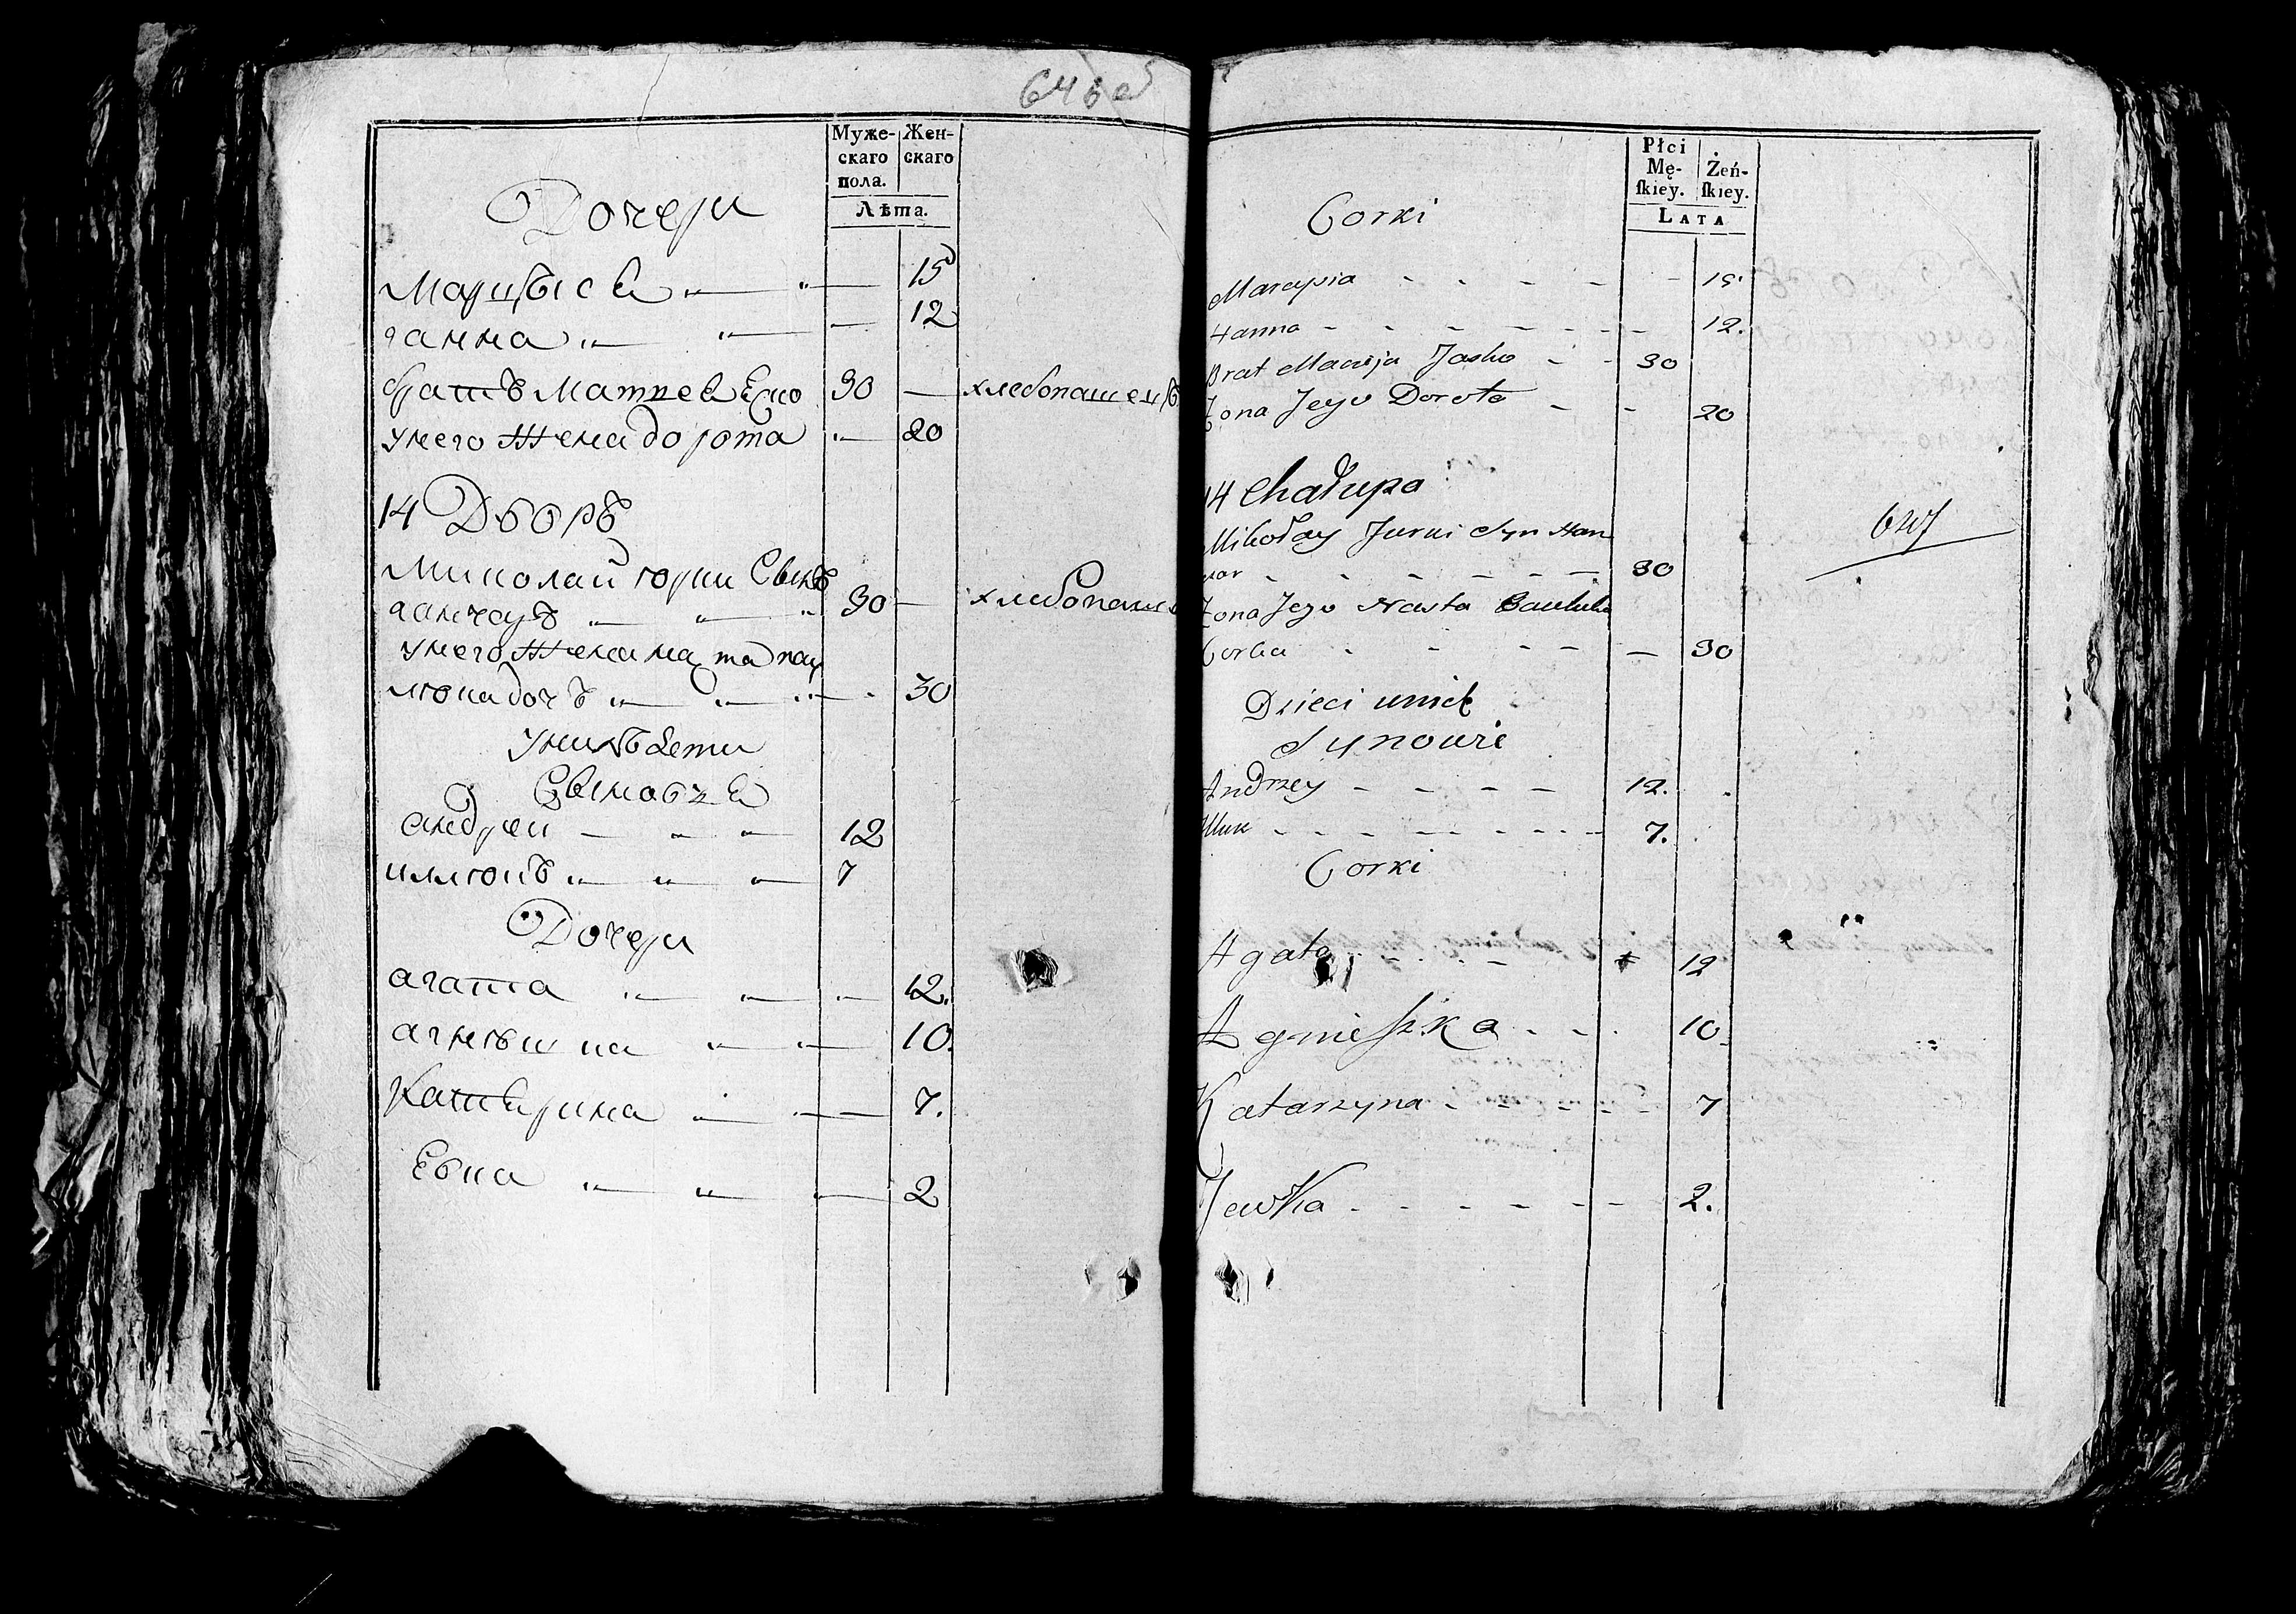 Муже- Жен-
скаго скаго
пола.
Лѣта.
Дочери
15
ганна 12
братъ Матвея Еско 30 — хлебопашецъ
унего жена дорота 20
14 Дворъ
Миколай юрки Сынъ
ганчаръ 30 — хлебопашец
унего жена наста пав
люка дочъ 30
унихъ дети
Сыновья
андреи 12
7
Дочери
агата 12.
10.
Катерина 7.
Евка 2
Płci
Mę- Żeń-
ſkiey. ſkiey.
LATA
Corki
Marapia 15.
Hanna 12.
Brat Macieja Jasko 30
Żona Jego Dorota 20
14 Chałupa
Mikołay Jurki Syn Han
czar 30
Żona Jego Nasta
Corka 30
Dzieci unich
Synowie
Andrzey 12.
7.
Corki
Agata 12
Agnieſzka 10
Katarzyna 7
Jewka 2.